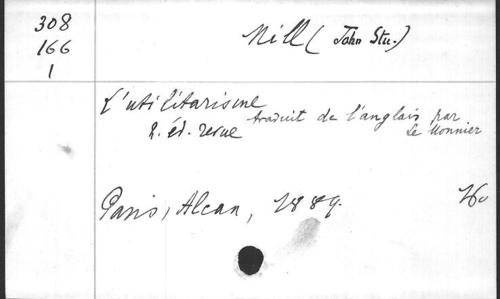 308
166
1
Mill (John Stu.)
L'utilitarisme
2. éd. revue traduit de l'anglais par
Le Monnier
Paris, Alcan, 1889.